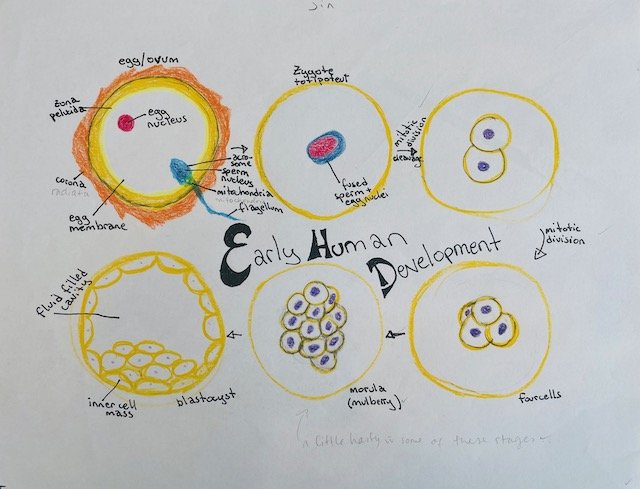 egg/ovum
zona
pelucida
egg
nucleus
corona
radiata
egg
membrane
acro-
some
sperm
nucleus
mitochdria
mitochondria
flagellum
Zygote
totipotent
fused
sperm +
egg nuclei
mitotic
division
cleavage
Early Human
Development
mitotic
division
fluid filled
cavity
inner cell
mass
blastocyst
morula
(mulberry)
four cells
a little hasty in some of these stages